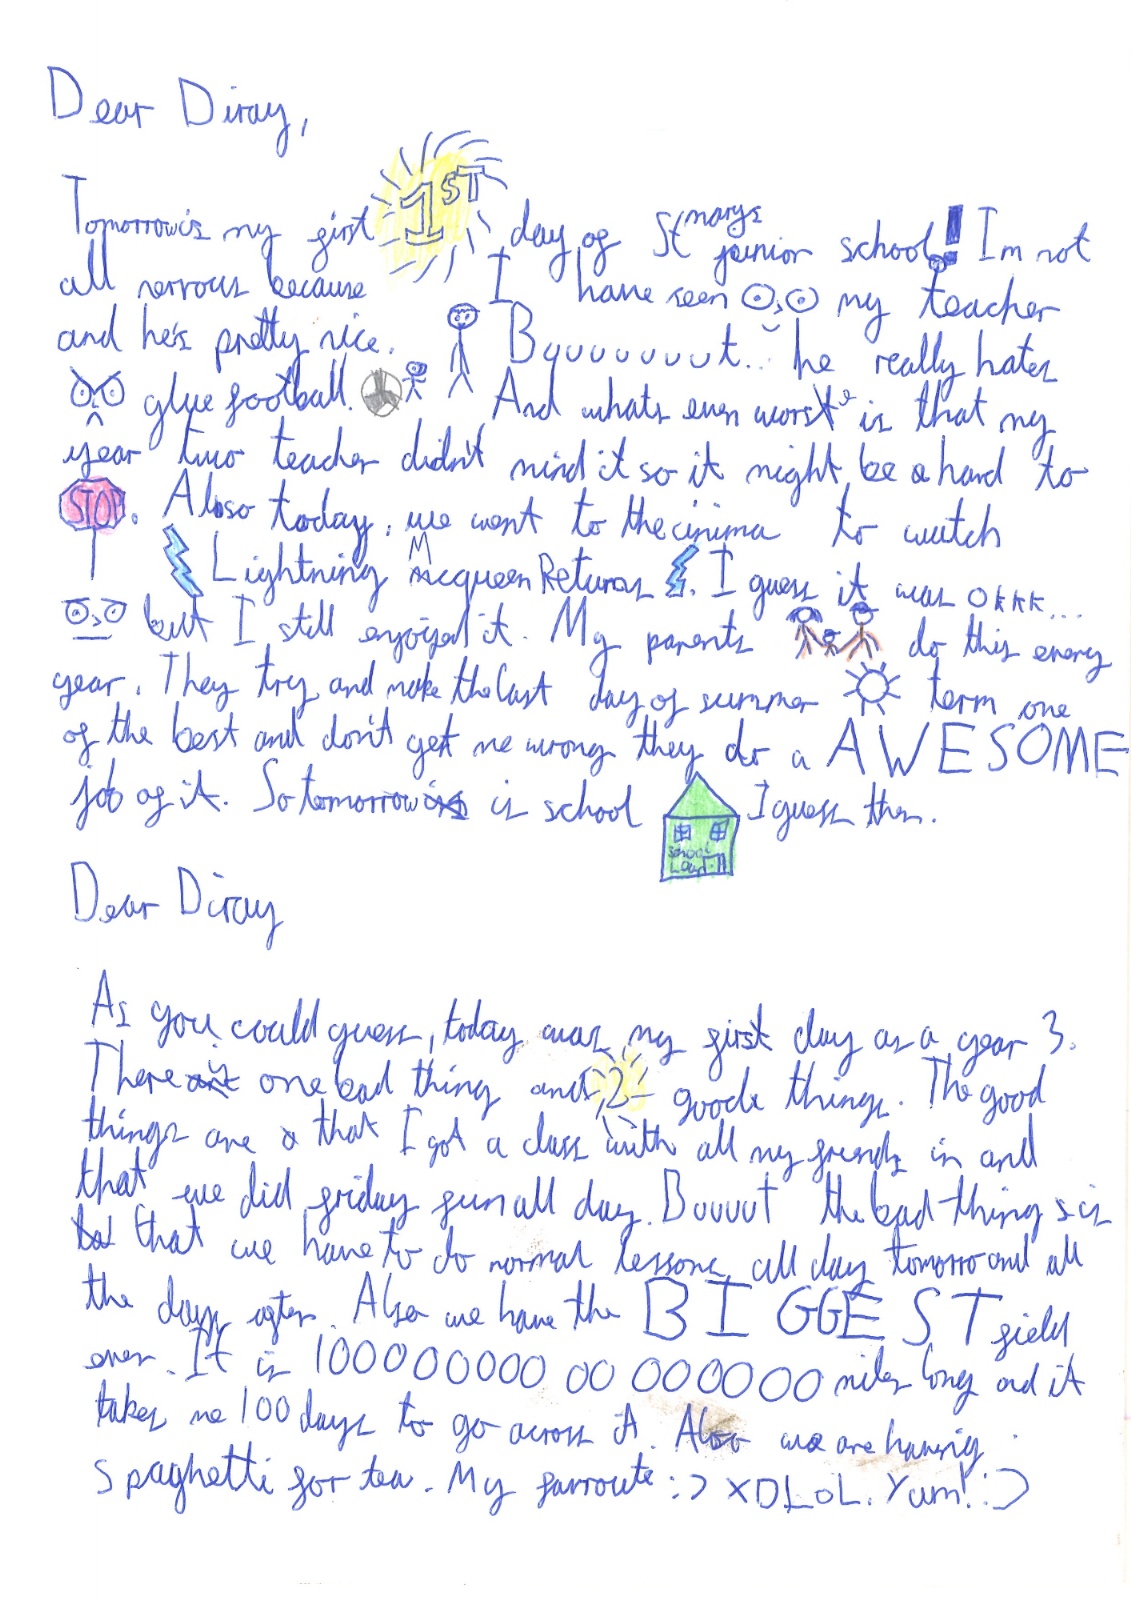 Dear Diray,
Tomorrow is my first 1ST day of St marys junior school! Im not
all nervous because I have seen my teacher
and he's pretty nice. Buuuuuuut.. he really hates
glue football. And whats even worse is that my
year two teacher didn't mind it so it might be a hard to
STOP. Also today, we went to the cinima to watch
Lightning Mcqueen Returns. I guess it was okkk...
but I still enjoyed it. My parents do this every
year. They try and make the last day of summer term one
of the best and don't get me wrong they do a AWESOME
job of it. So tomorrow is school I guess then.
school
Dear Diray
As you could guess, today was my first day as a year 3.
There is one bad thing and 2 goode things. The good
things are that I got a class with all my friends in and
that we did friday fun all day. Buuuut the bad things is
that we have to do normal lessons all day tomorro and all
the days after. Also we have the BIGGEST field
ever. It is 100000000 00 000000 miles long and it
takes me 100 days to go across it. Also we are having
spaghetti for tea. My favroute :) XDLOL. Yum! :)